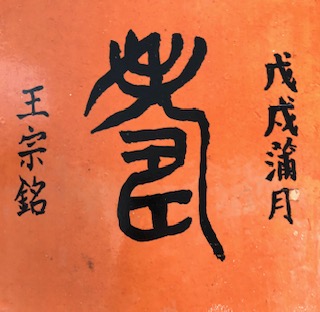 戊戌蒲月
壽
王宗銘